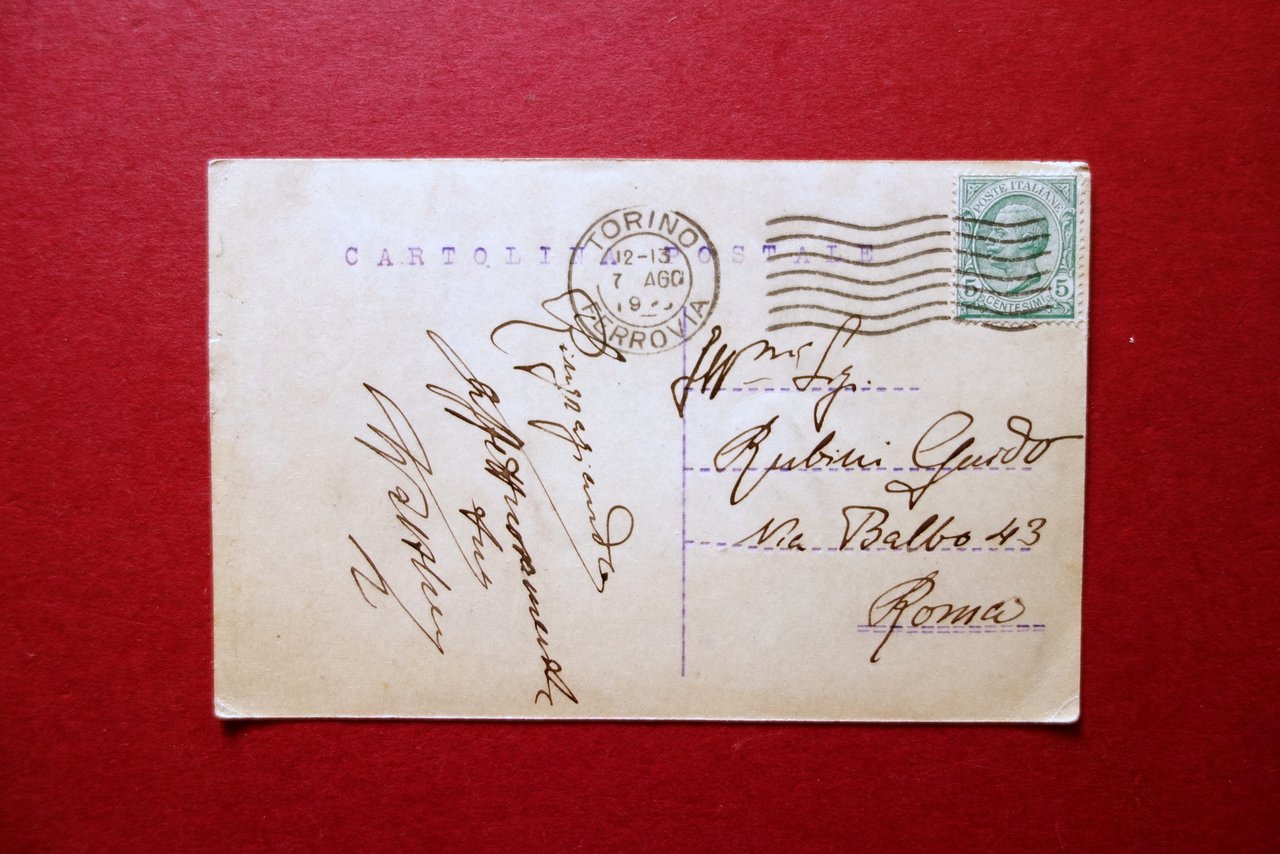 CARTOLINA POSTALE
TORINO
12-13
7 AGO
19
FERROVIA
POSTE ITALIANE
5 CENTESIMI 5
Ill.mo Sig.
Rubini Guido
Via Balbo 43
Roma
Ringraziando
affettuosamente